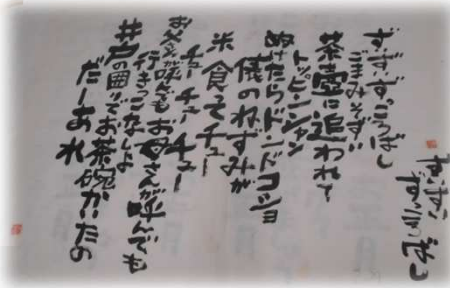 ずいずい
ずっころばし
ずいずいずっころばし
ごまみそずい
茶壷に追われて
トッピンシャン
ぬけたらドンドコショ
俵のねずみが
米食ってチュー
チューチューチュー
お父さんが呼んでもお母さんが呼んでも
行きっこなしよ
井戸の囲りでお茶碗かいたの
だーあれ